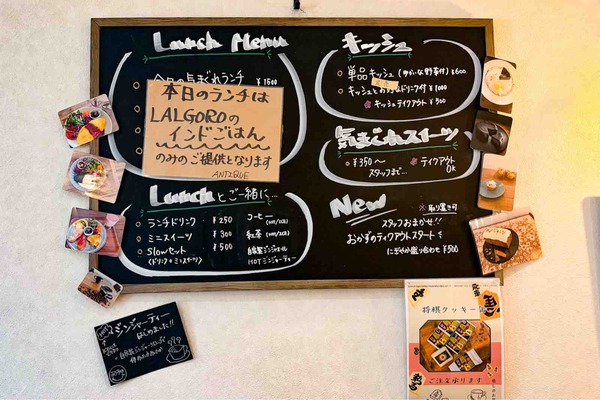 Lunch Menu
今日の気まぐれランチ
¥1500
本日のランチは
LALGOROの
インドごはん
のみのご提供となります
ANTIQUE
Lunchとご一緒に...
ランチドリンク ¥250
ミニスイーツ ¥300
Slowセット ¥500
(ドリンク+ミニスイーツ)
コーヒー (HOT/ICE)
紅茶 (HOT/ICE)
自家製ジンジャーエール
HOTジンジャーティー
キッシュ
単品キッシュ
¥600
¥1000
キッシュテイクアウト ¥500
気まぐれスイーツ
¥350〜
テイクアウト
OK
スタッフまで...
New
※取り置き可
スタッフおまかせ!!
おかずのテイクアウトスタート
¥500
ジンジャーティー
はじめました!!
将棋クッキー
ご注文承ります